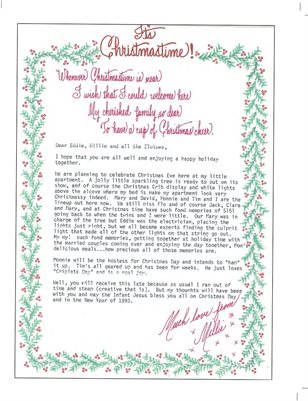 It's
Christmastime!
Whenever Christmastime is near
I wish that I could welcome here
My cherished family so dear
To have a cup of Christmas cheer!
Dear Eddie, Millie and all the Clotown,
I hope that you are all well and enjoying a happy holiday
together.
We are planning to celebrate Christmas Eve here at my little
apartment. A jolly little sparkling tree is ready to put on its
show, and of course the Christmas Crib display and white lights
above the alcove where my bed is make my apartment look very
Christmassy indeed. Mary and David, Ponnie and Tim and I are the
lineup out here now. We still miss Flo and of course Jack, Clara
and Mary, and at Christmas time have such fond memories of all
going back to when the trio and I were little. Our Mary was in
charge of the tree but Eddie was the electrician, placing the
lights just right, but we all became experts finding the culprit
light that made all of the other lights on that string go out.
My my, such fond memories, getting together at holiday time with
the married couples coming over and enjoying the day together, Mom's
delicious meals...how precious all of those memories are.
Ponnie will be the hostess for Christmas Day and intends to "ham"
it up. Tim's all geared up and has been for weeks. He just loves
and is a real joy.
Well, you will receive this late because as usual I ran out of
time and steam (creative that is). But my thoughts will have been
with you and may the Infant Jesus bless you all on Christmas Day
and in the New Year of 1993.
Much love from
Millie